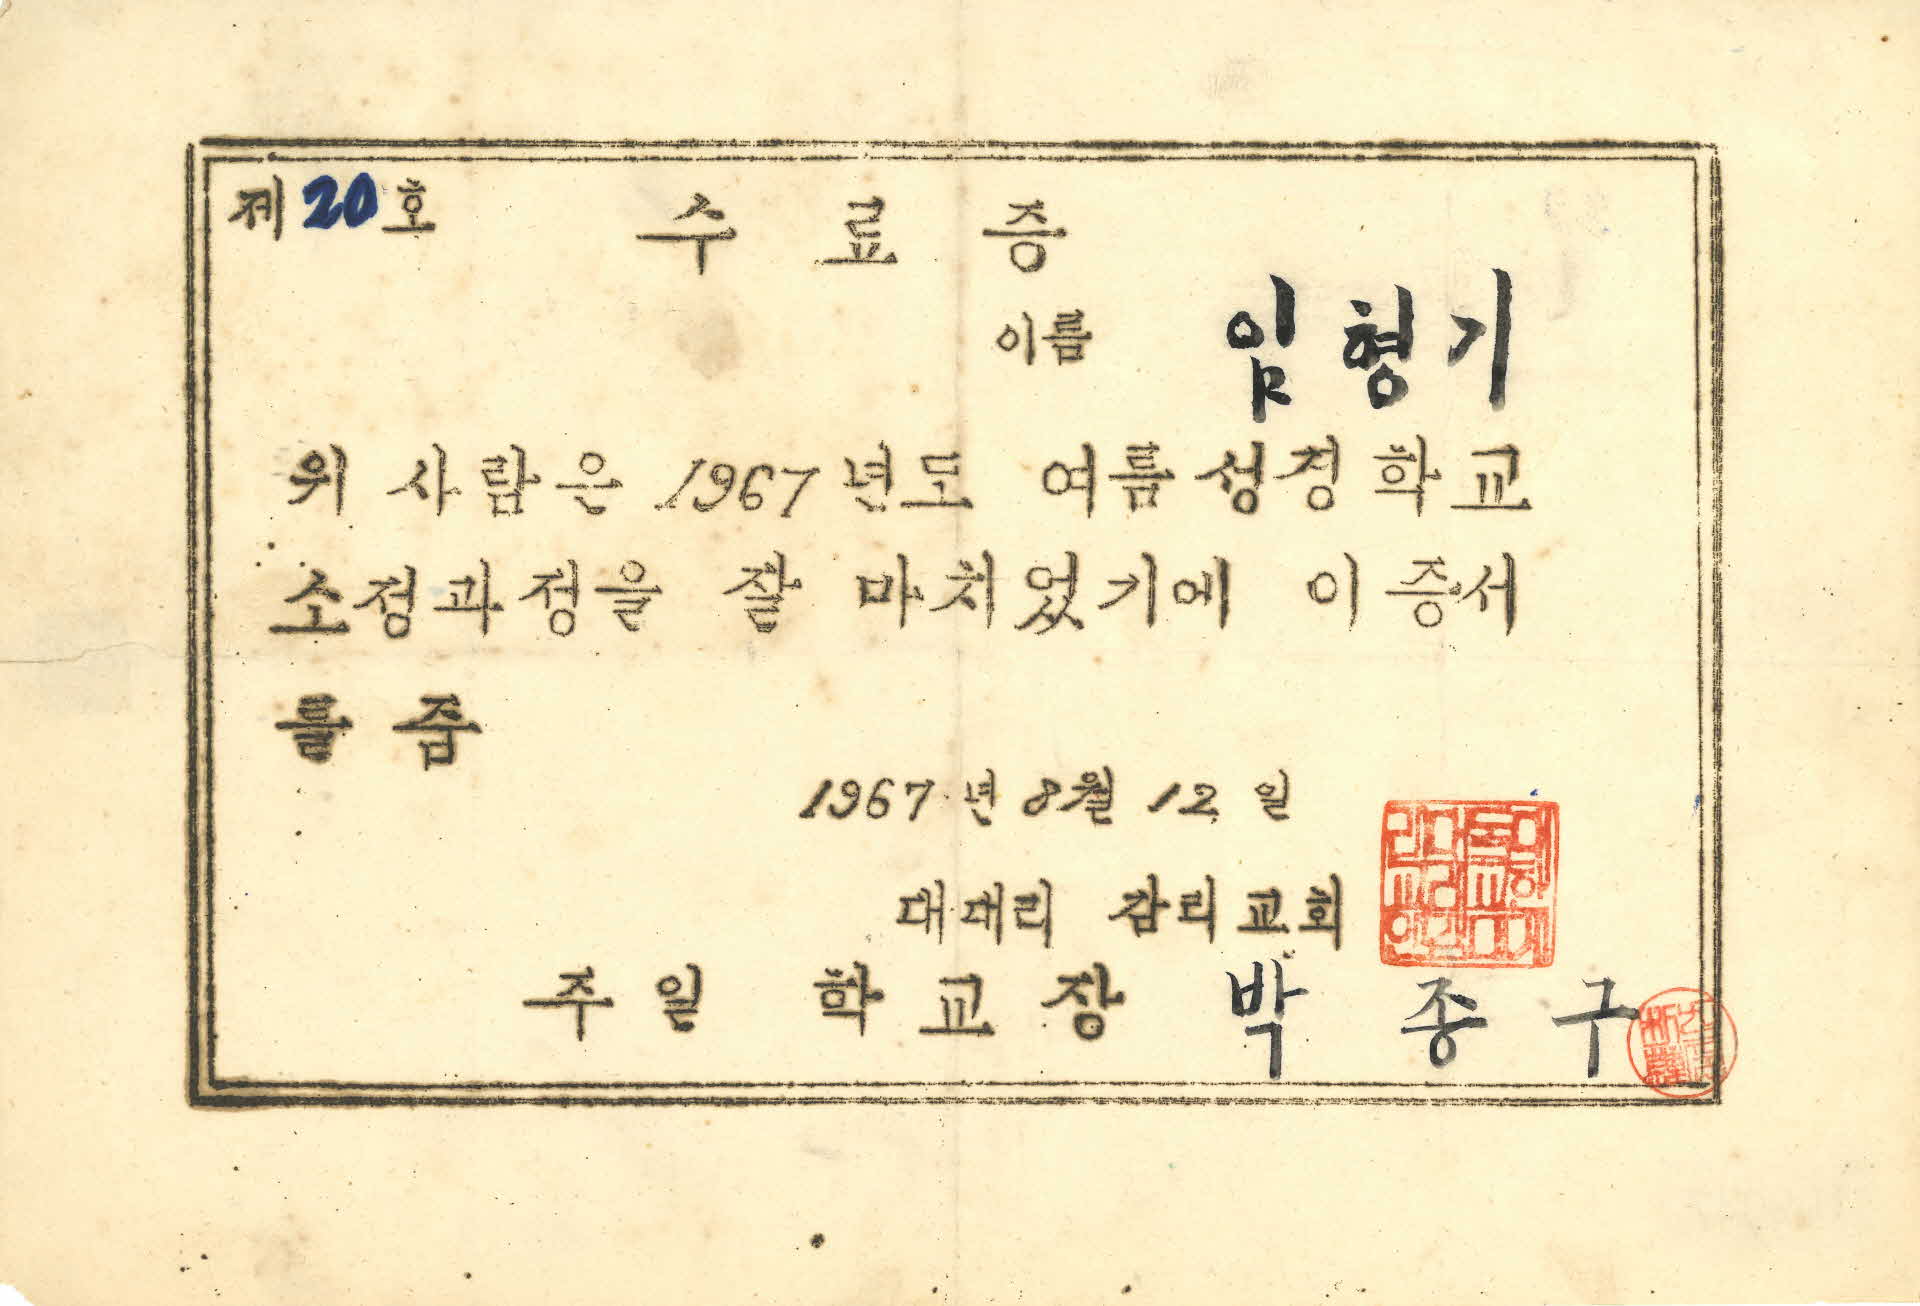 제 20 호
수료증
이름 임형기
위 사람은 1967년도 여름성경학교
소정과정을 잘 마치었기에 이 증서
를 줌
1967년 8월 12일
대대리 감리교회
주일 학교장 박종구